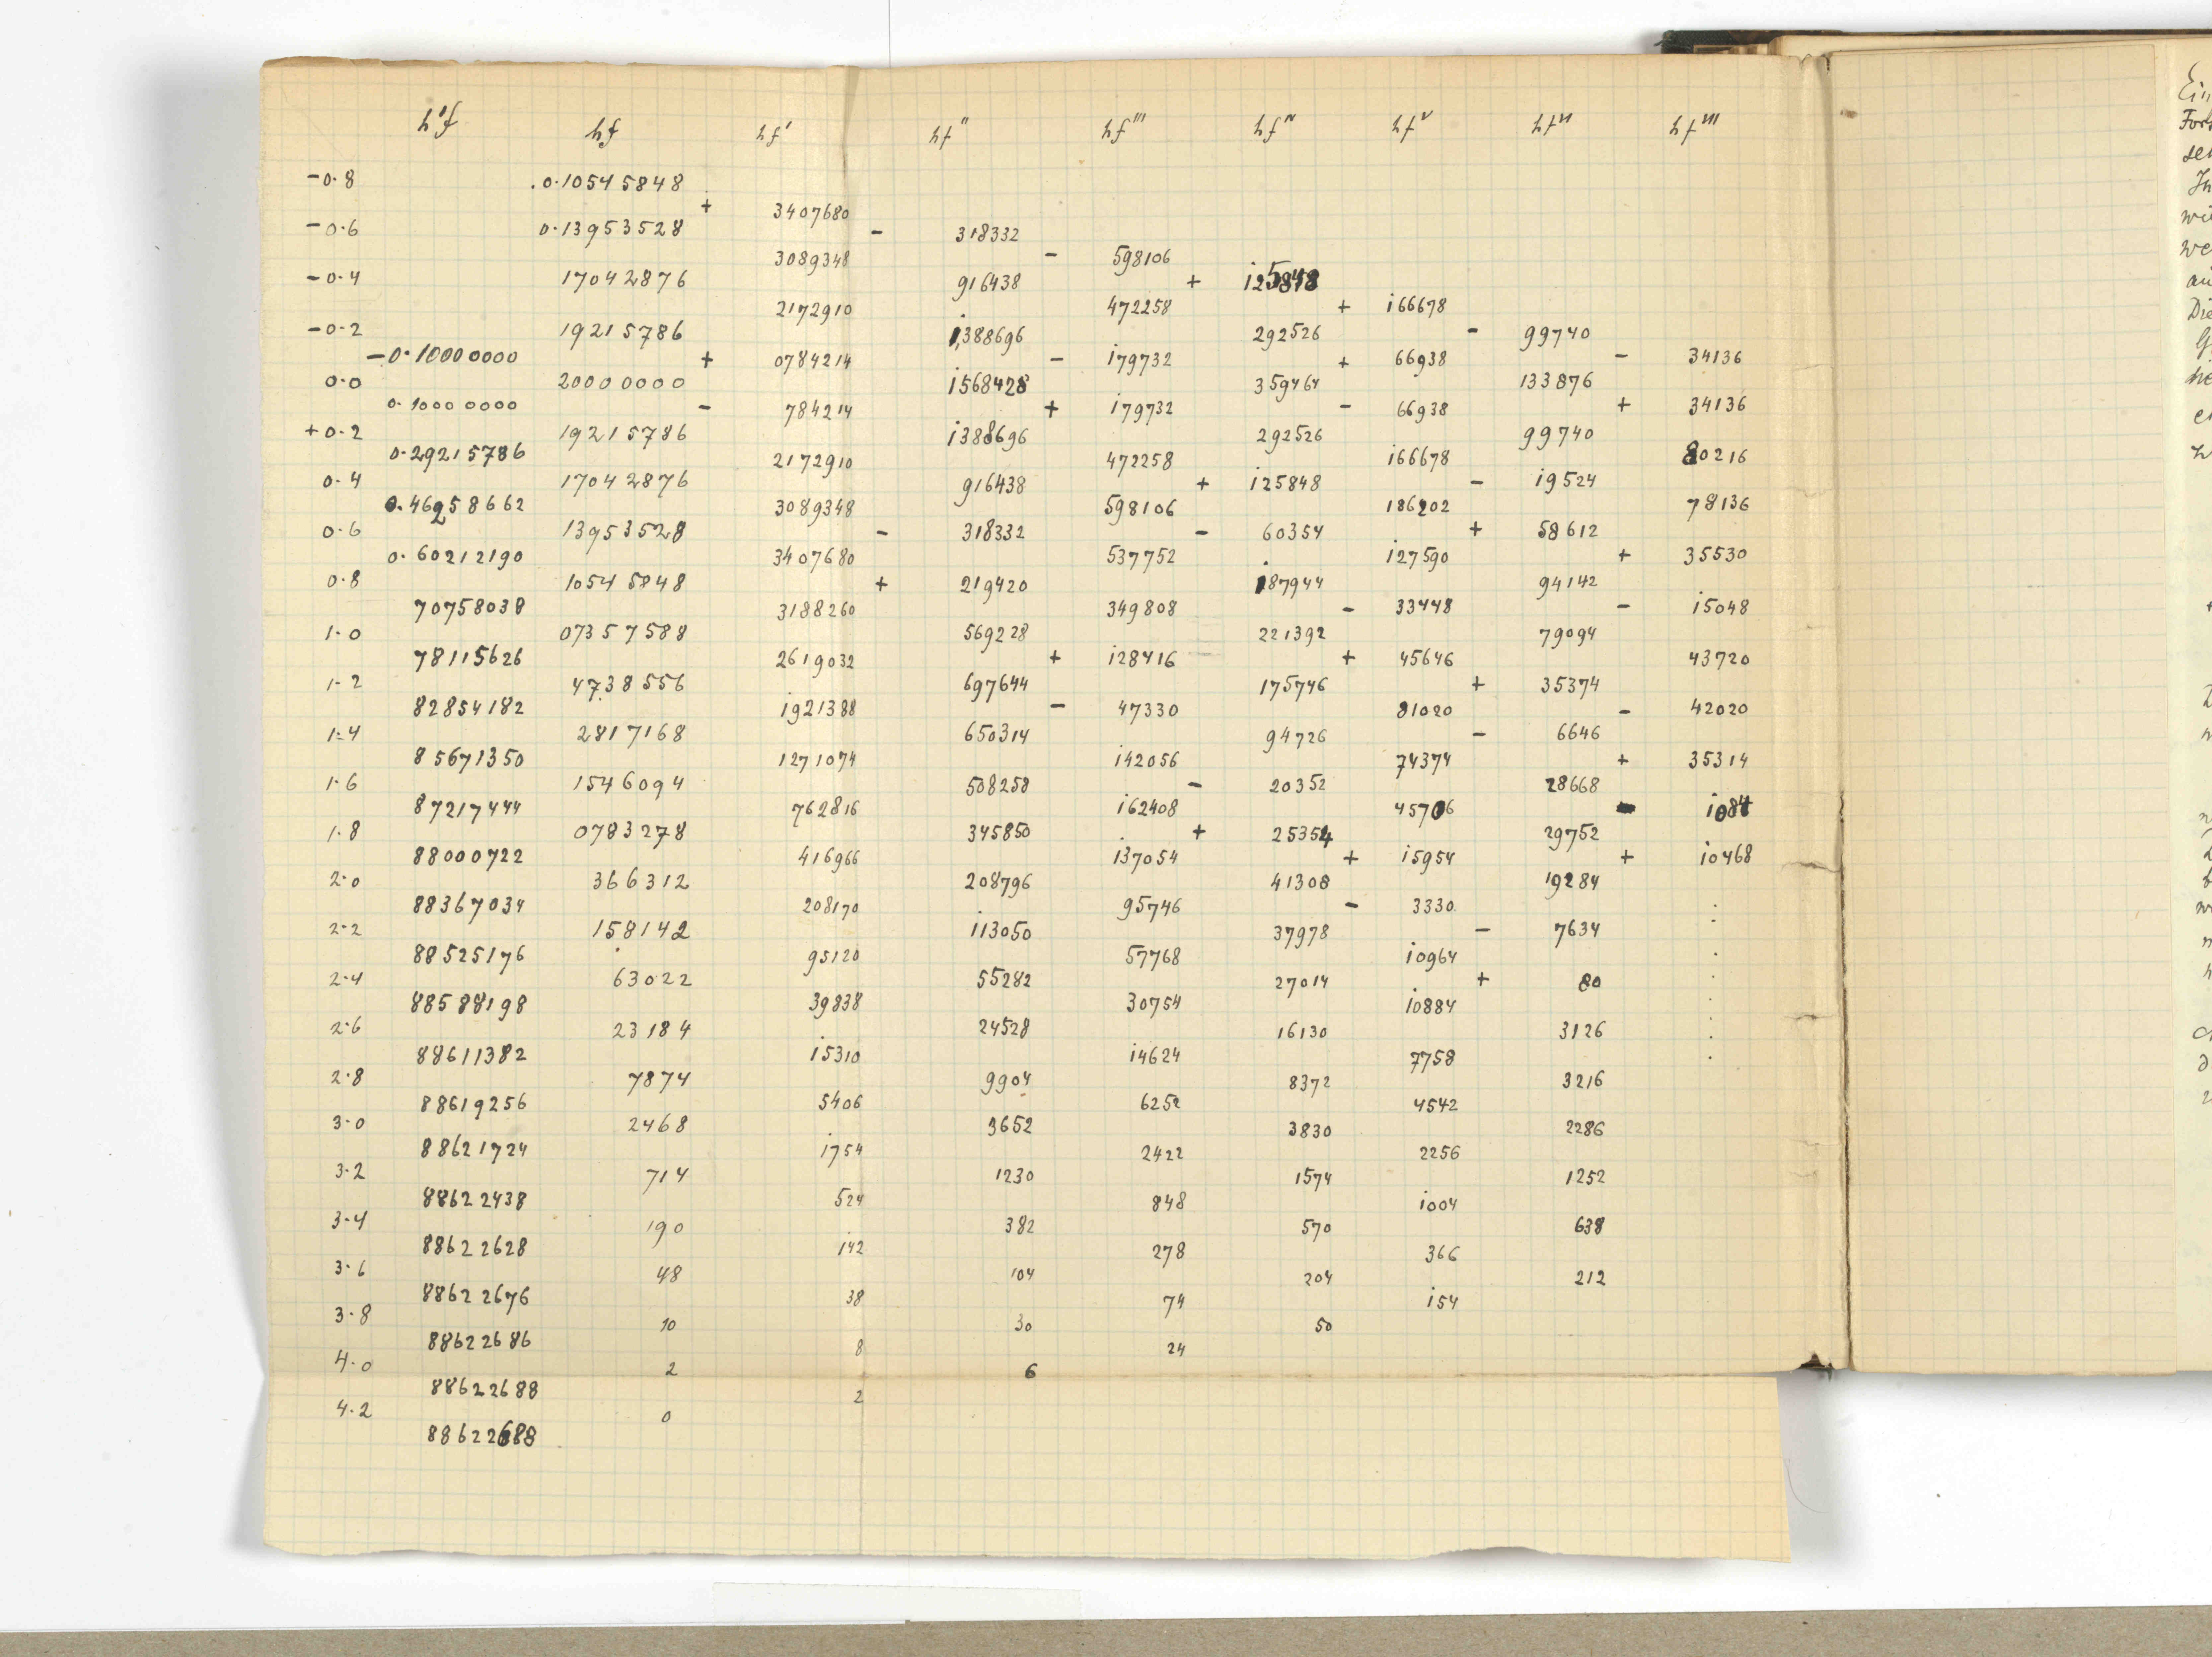 h'f hf hf' hf'' hf''' hf^IV hf^V hf^VI hf^VII
-0.8 .0.10545848
+ 3407680
-0.6 0.13953528 - 318332
3089348 - 598106
-0.4 17042876 916438 + 125848
2172910 472258 + 166678
-0.2 19215786 1388696 292526 - 99740
-0.10000000 + 0784214 - 179732 + 66938 - 34136
0.0 20000000 1568428 359464 133876
0.10000000 - 784214 + 179732 - 66938 + 34136
+0.2 19215786 1388696 292526 99740
0.29215786 2172910 472258 166678 80216
0.4 17042876 916438 + 125848 - 19524
0.46258662 3089348 598106 186202 78136
0.6 13953528 - 318332 - 60354 + 58612
0.60212190 3407680 537752 127590 + 35530
0.8 10545848 + 219420 187944 94142
70758038 3188260 349808 - 33448 - 15048
1.0 07357588 569228 221392 79094
78115626 2619032 + 128416 + 45646 43720
1.2 4738556 697644 175746 + 35374
82854182 1921388 - 47330 81020 - 42020
1.4 2817168 650314 94726 - 6646
85671350 1271074 142056 74374 + 35314
1.6 1546094 508258 - 20352 28668
87217444 762816 162408 45706 - 1084
1.8 0783278 345850 + 25354 29752
88000722 416966 137054 + 15954 + 10468
2.0 366312 208796 41308 19284
88367034 208170 95746 - 3330 .
2.2 158142 113050 37978 - 7634
88525176 95120 57768 10964 .
2.4 63022 55282 27014 + 80
88588198 39838 30754 10884 .
2.6 23184 24528 16130 3126
88611382 15310 14624 7758 .
2.8 7874 9904 8372 3216
88619256 5406 6252 4542
3.0 2468 3652 3830 2286
88621724 1754 2422 2256
3.2 714 1230 1574 1252
88622438 524 848 1004
3.4 190 382 570 638
88622628 142 278 366
3.6 48 104 204 212
88622676 38 74 154
3.8 10 30 50
88622686 8 24
4.0 2 6
88622688 2
4.2 0
88622688